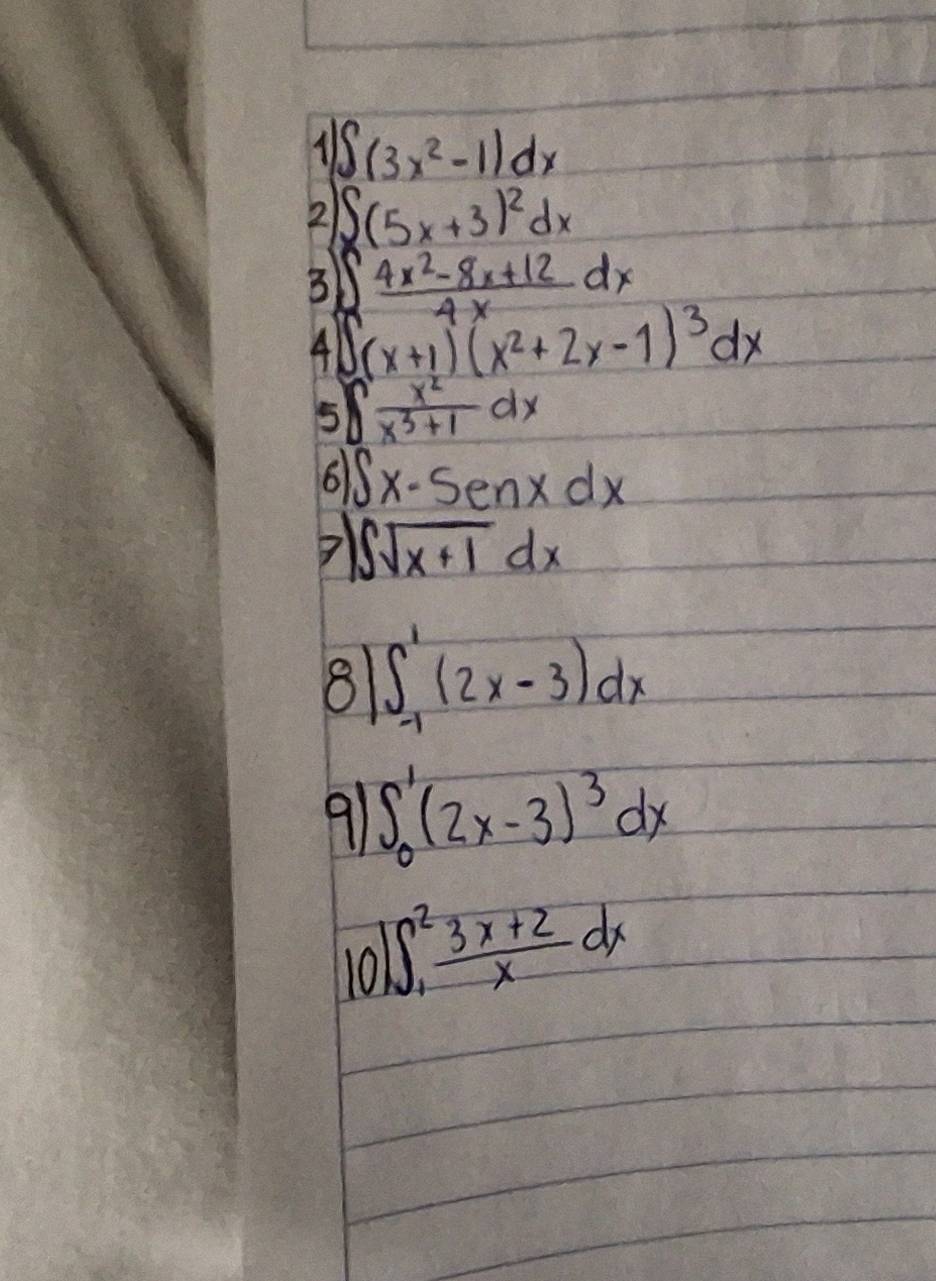 1) ∫(3x²-1)dx
2) ∫(5x+3)²dx
3) ∫ 4x²-8x+12/4x dx
4) ∫(x+1)(x²+2x-1)³dx
5) ∫ x²/x³+1 dx
6) ∫x-Senx dx
7) ∫√x+1 dx
8) ∫₋₁¹(2x-3)dx
9) ∫₀¹(2x-3)³dx
10) ∫₁² 3x+2/x dx